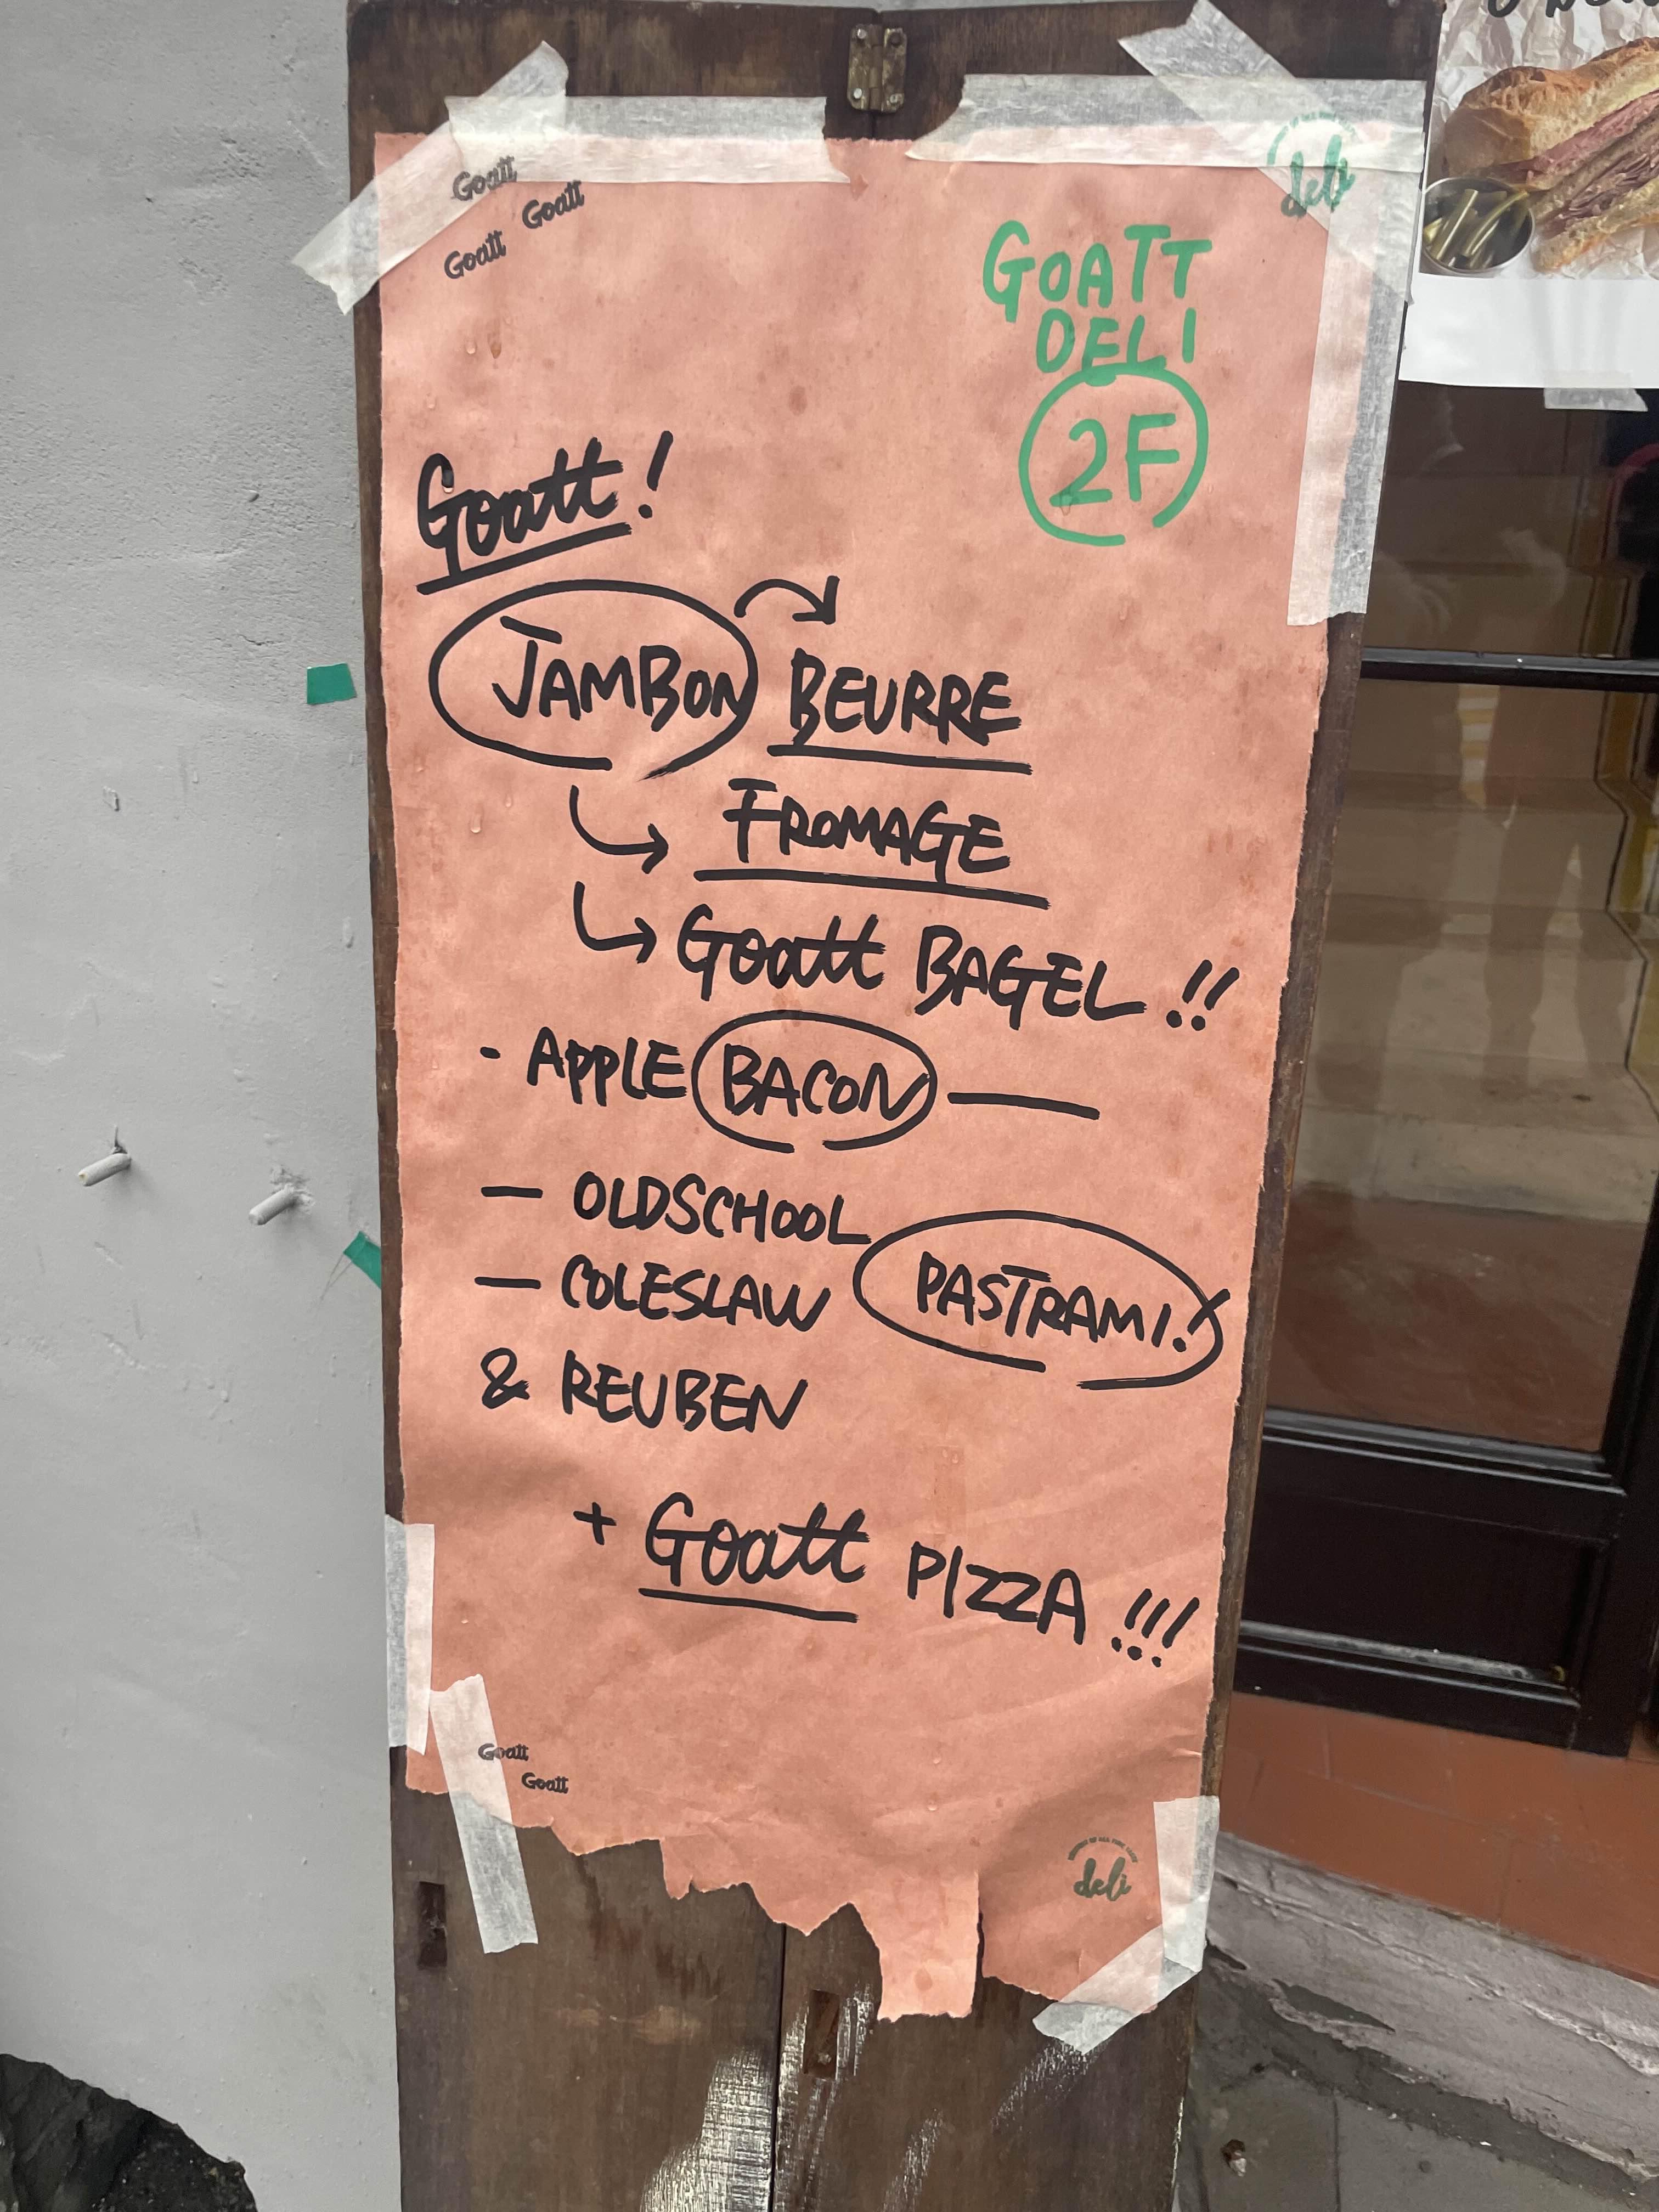 Goatt
Goatt
Goatt
deli
GOATT
DELI
2F
Goatt!
JAMBON BEURRE
FROMAGE
Goatt BAGEL!!
- APPLE BACON —
— OLDSCHOOL
— COLESLAW PASTRAMI!
& REUBEN
+ Goatt PIZZA!!!
Goatt
Goatt
deli